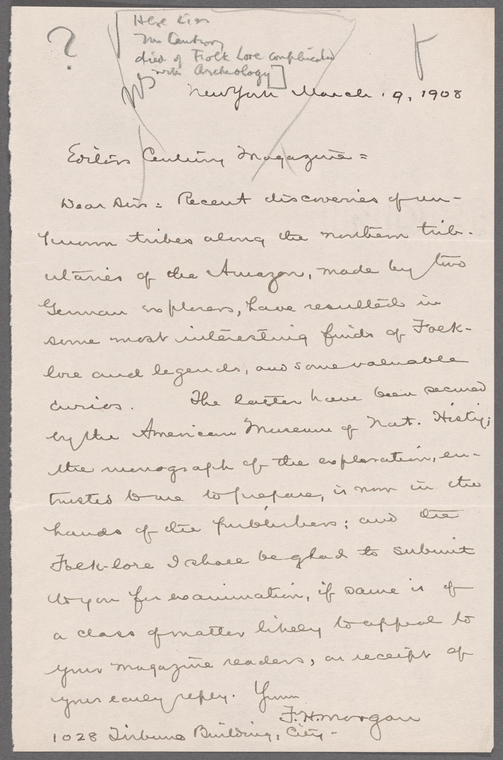 ?
Here lies
The Century
died of Folk Lore complicated
with Archeology
New York March 9, 1908
Editors Century Magazine =
Dear Sirs: Recent discoveries of un-
known tribes along the northern trib-
utaries of the Amazon, made by two
German explorers, have resulted in
some most interesting finds of Folk-
lore and legends, and some valuable
curios. The latter have been secured
by the American Museum of Nat. Histy;
the monograph of the exploration, en-
trusted to me to prepare, is now in the
hands of the publishers; and the
Folk-lore I shall be glad to submit
to you for examination, if same is of
a class of matter likely to appeal to
your magazine readers, on receipt of
your early reply. Yours
F. H. Morgan
1028 Tribune Building, City-